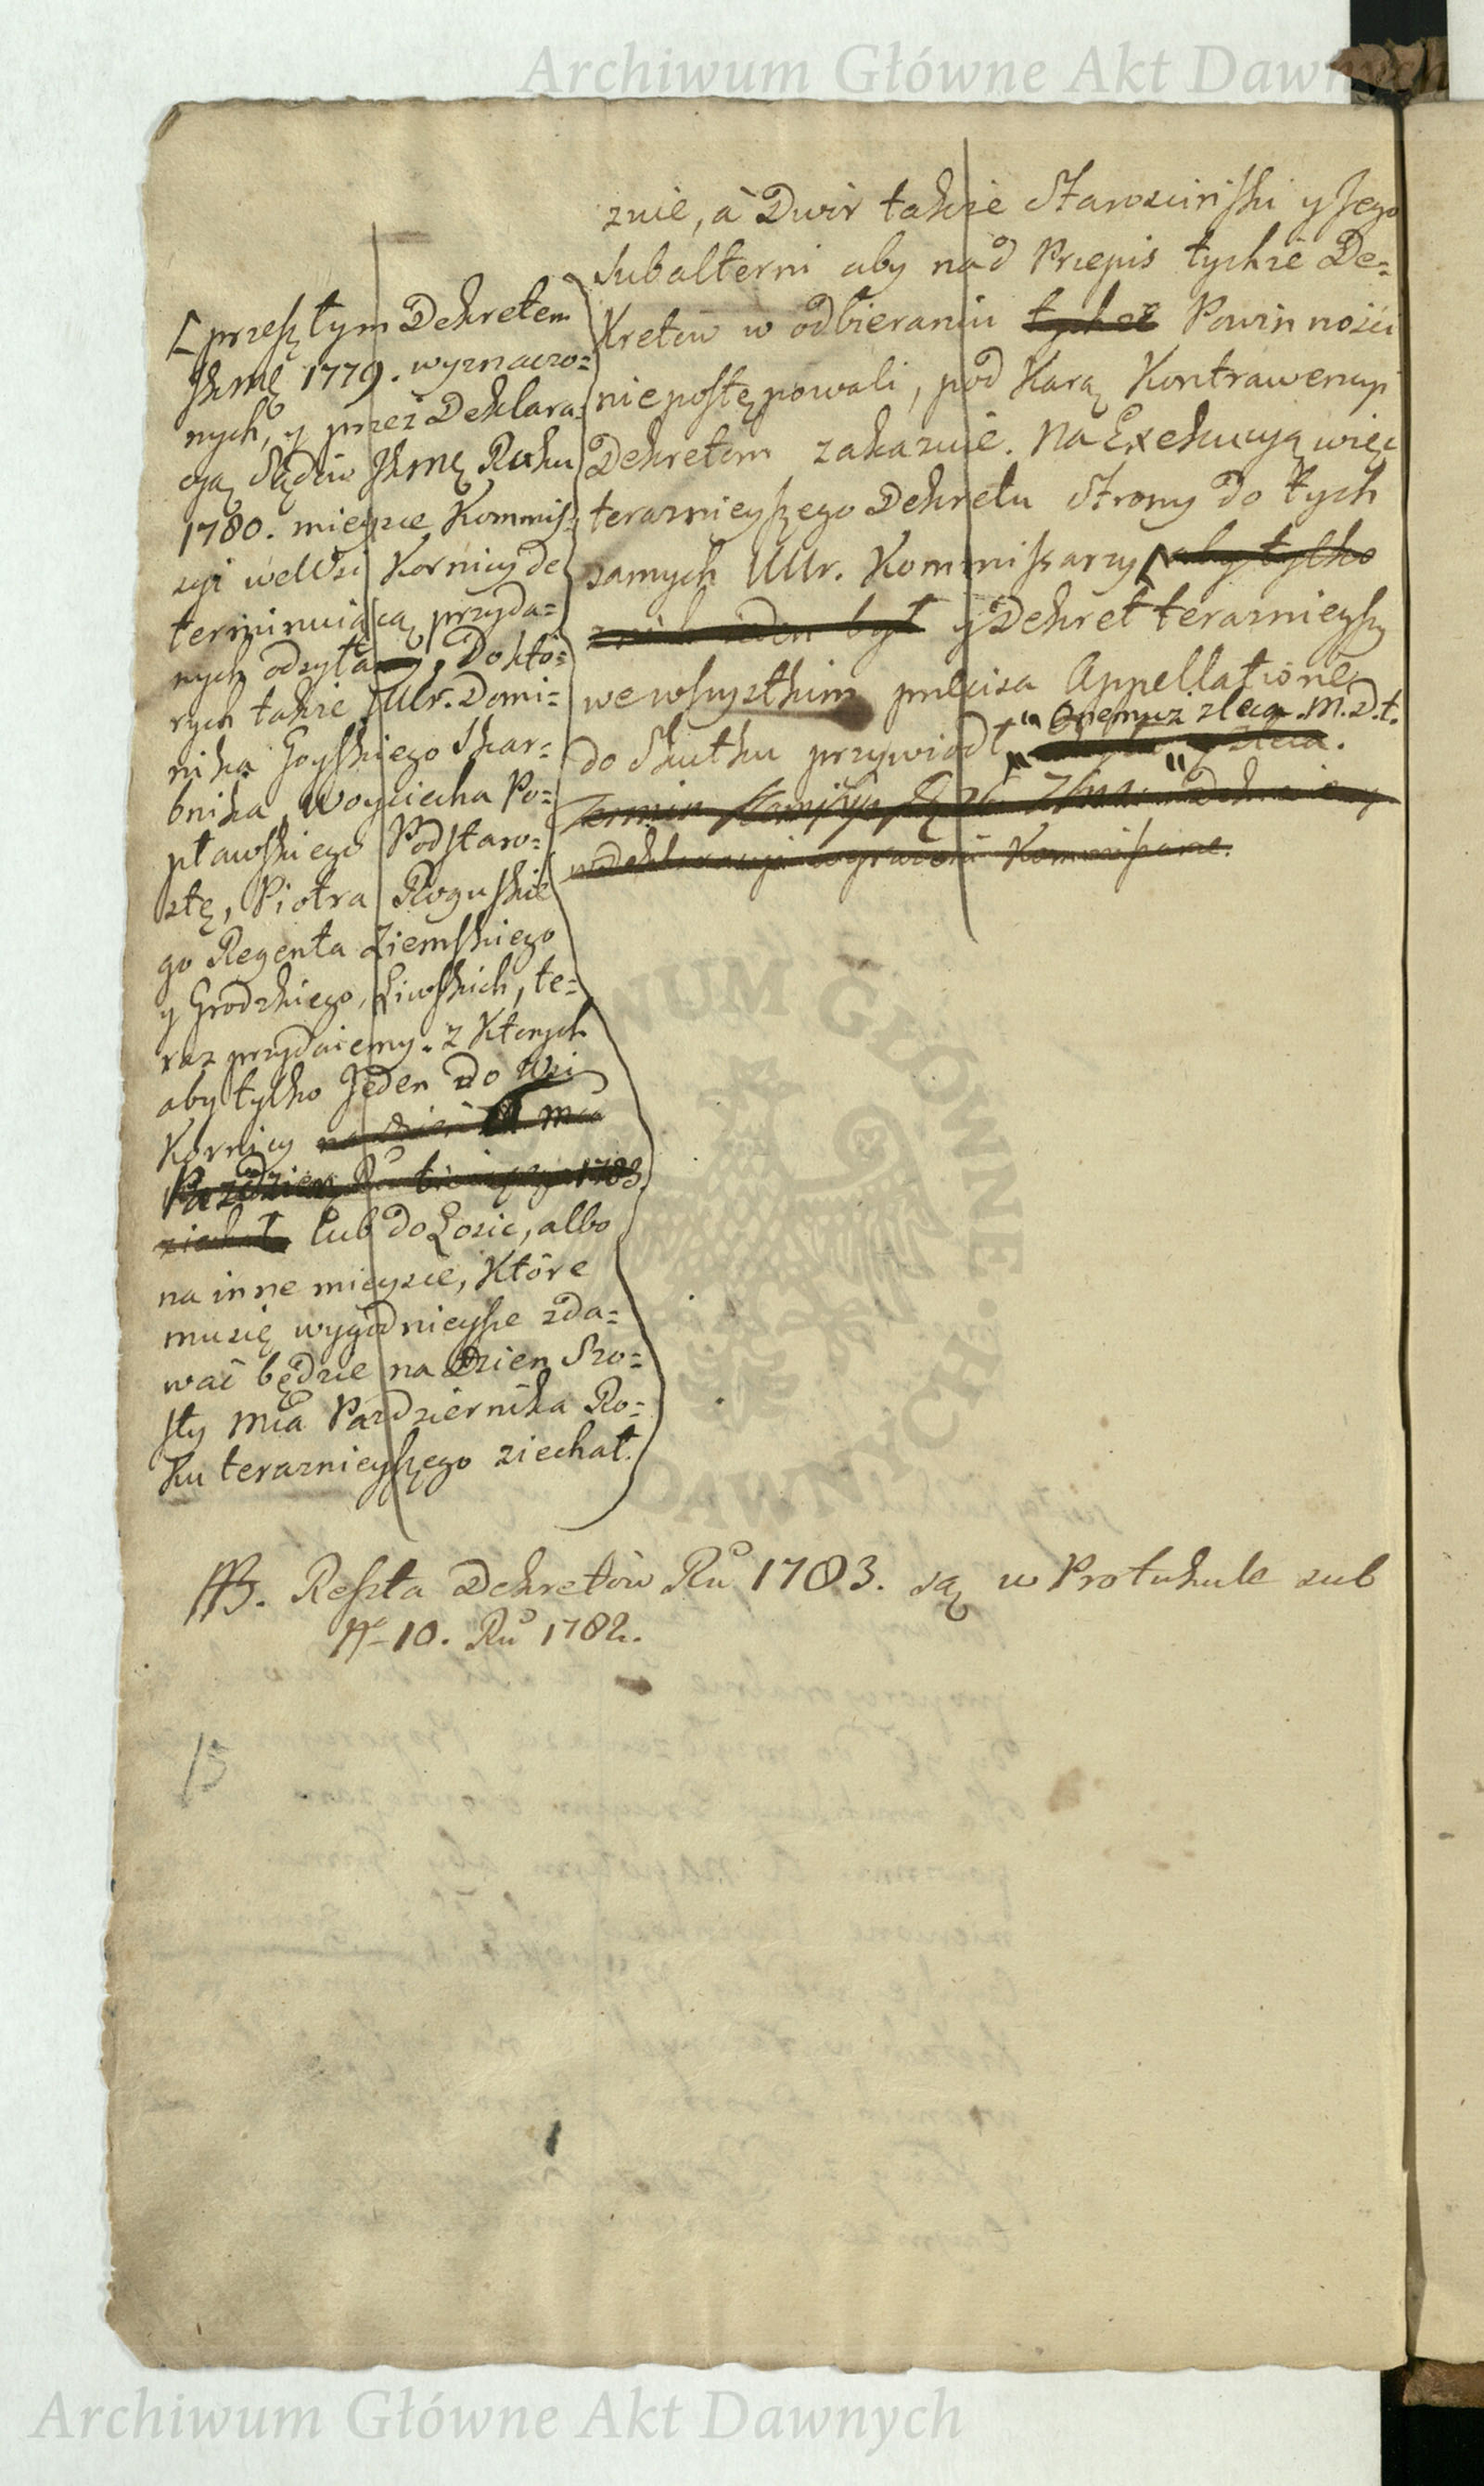 Archiwum Główne Akt Dawnych
znie, à Dwór także Starosciński y Jego
Subalterni aby nad Przepis tychże De=
kretow w odbieraniu tychże Powinnosci
niepostępowali, pod Karą Kontrawencyi
Dekretom zakazuie. Na Exekucyą więc
teraznieyszego Dekretu Strony do tych
samych Ullr. Kommissarzy aby tylko
z nich ieden był y Dekret teraznieyszy
we wszystkim præcisa Appellatione
do Skutku przywiodł „Onemuz zleca. M. D. t.
zleca.
Termin
w deklaracyi wyrazoni Kommissarze.
przeszłym Dekretem
Jkmę 1779. wyznaczo=
nych, y przez Deklara=
cyą Sądów Jkmę Roku
1780. mieysce Kommis=
syi we Wsi Kornicy de
terminuiącą przyda=
nych odsyła, Do któ=
rych także Ullr. Domi=
nika Goyskiego Skar=
bnika, Woyciecha Po=
pławskiego Podstaro=
stę, Piotra Roguskie
go Regenta Ziemskiego
y Grodzkiego, Liwskich, te=
raz przydaiemy. z Ktorych
aby tylko Jeden do Wsi
Kornicy na dzień Mca
Pazdzier. Ru 1783.
ziechał lub do Łosic, albo
na inne mieysce, Które
mu się wygodnieysze zda=
wać będzie na Dzien Szo=
sty Mca Pazdziernika Ro=
ku teraznieyszego ziechał.
NB. Reszta Dekretów Ru 1783. są w Protokule sub
No 10. Ru 1782.
15
Archiwum Główne Akt Dawnych